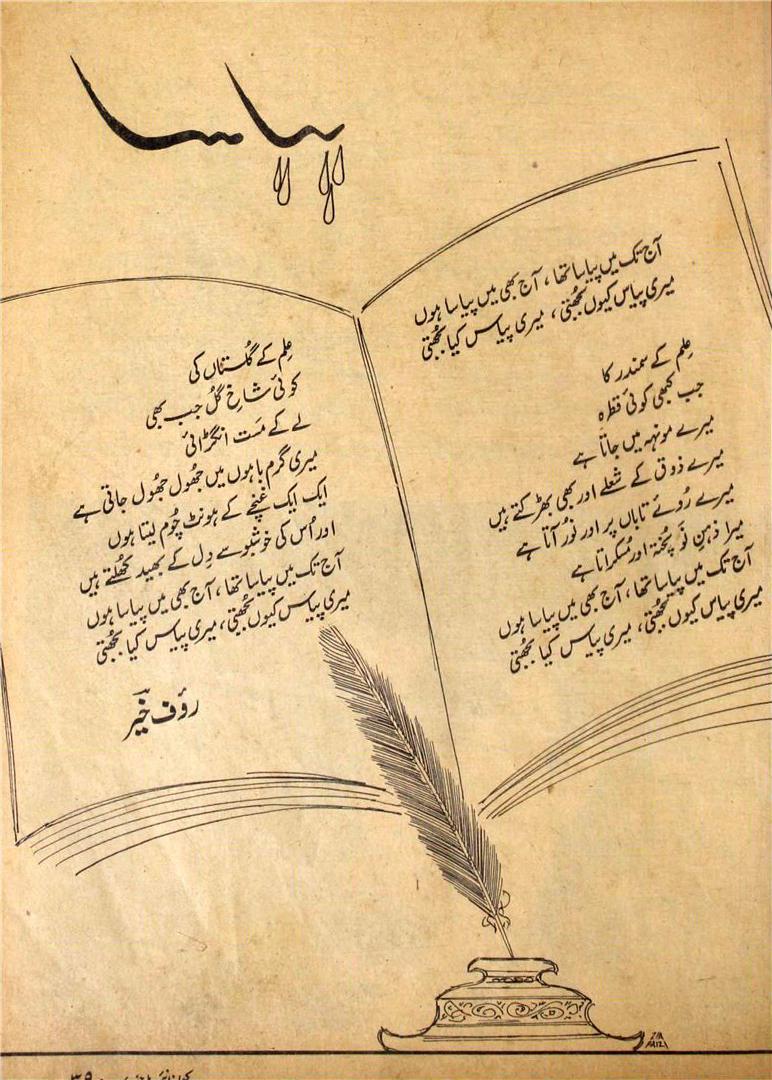 پیاسا
آج تک میں پیاسا تھا، آج بھی میں پیاسا ہوں
میری پیاس کیوں بجھتی، میری پیاس کیا بجھتی
عِلم کے سمندر کا
جب کبھی کوئی قطرہ
میرے مونہہ میں جاتا ہے
میرے ذوق کے شعلے اور بھی بھڑکتے ہیں
میرے رُوئے تاباں پر اور نُور آتا ہے
میرا ذہنِ نَو پُختہ اور مُسکراتا ہے
آج تک میں پیاسا تھا، آج بھی میں پیاسا ہوں
میری پیاس کیوں بجھتی، میری پیاس کیا بجھتی
عِلم کے گلستاں کی
کوئی شاخِ گُل جب بھی
لے کے مَست انگڑائی
میری گرم باہوں میں جھُول جھُول جاتی ہے
ایک ایک غنچے کے ہونٹ چُوم لیتا ہوں
اور اُس کی خوشبو سے دِل کے بھید کھُلتے ہیں
آج تک میں پیاسا تھا، آج بھی میں پیاسا ہوں
میری پیاس کیوں بجھتی، میری پیاس کیا بجھتی
رؤف خیرؔ
ZIA
FAIZI